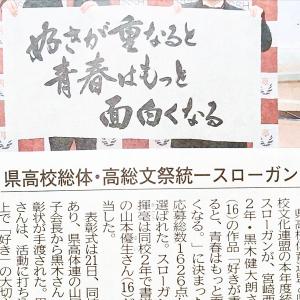 好きが重なると
青春はもっと
面白くなる
県高校総体・高総文祭統一スローガン
校文化連盟の本年度
スローガンが、宮崎西
2年・黒木健大朗さ
(16)の作品「好きが
ると、青春はもっと
くなる。」に決まっ
応募総数1626点
選ばれた。スローガン
揮毫は同校2年で書
の山本優生さん(16)
当した。
表彰式は21日、同
あり、県高体連の山
子会長から黒木さん
彰状が手渡された。
さんは、活動に打ち
上で「好き」の大切